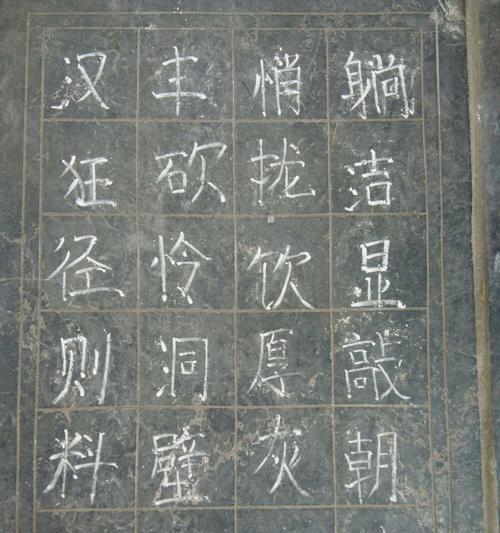 汉丰悄躺
狂砍拢洁
径怜饮显
则洞厚敲
料壁灰朝